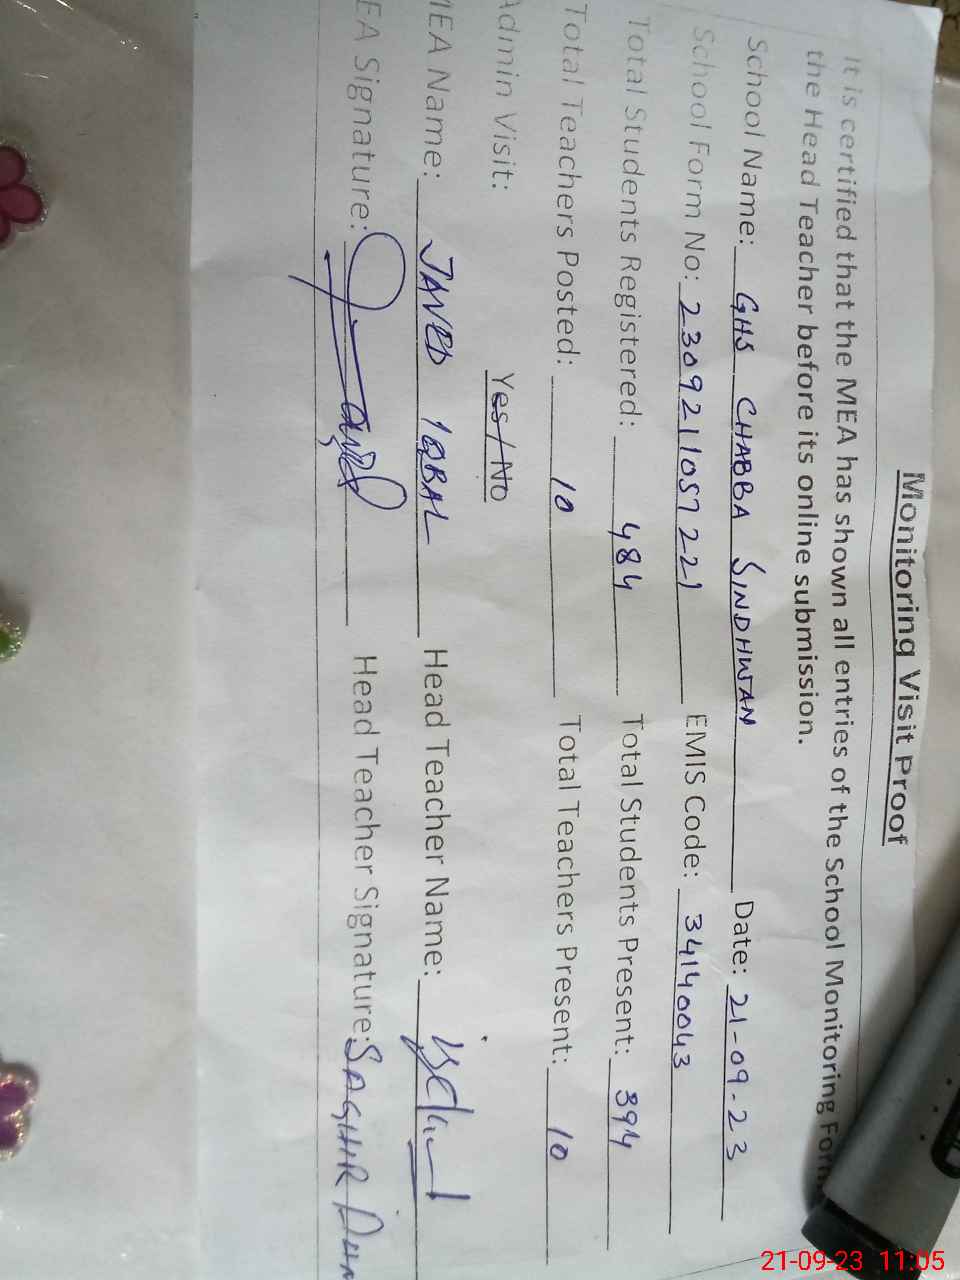 Monitoring Visit Proof
It is certified that the MEA has shown all entries of the School Monitoring Form
the Head Teacher before its online submission.
School Name: GHS CHABBA SINDHWAN Date: 21-09-23
School Form No: 2309211057221 EMIS Code: 34140043
Total Students Registered: 484 Total Students Present: 394
Total Teachers Posted: 10 Total Teachers Present: 10
Admin Visit: Yes / No
MEA Name: JAVED IQBAL Head Teacher Name:
EA Signature: Head Teacher Signature: SAGHIR
21-09-23 11:05